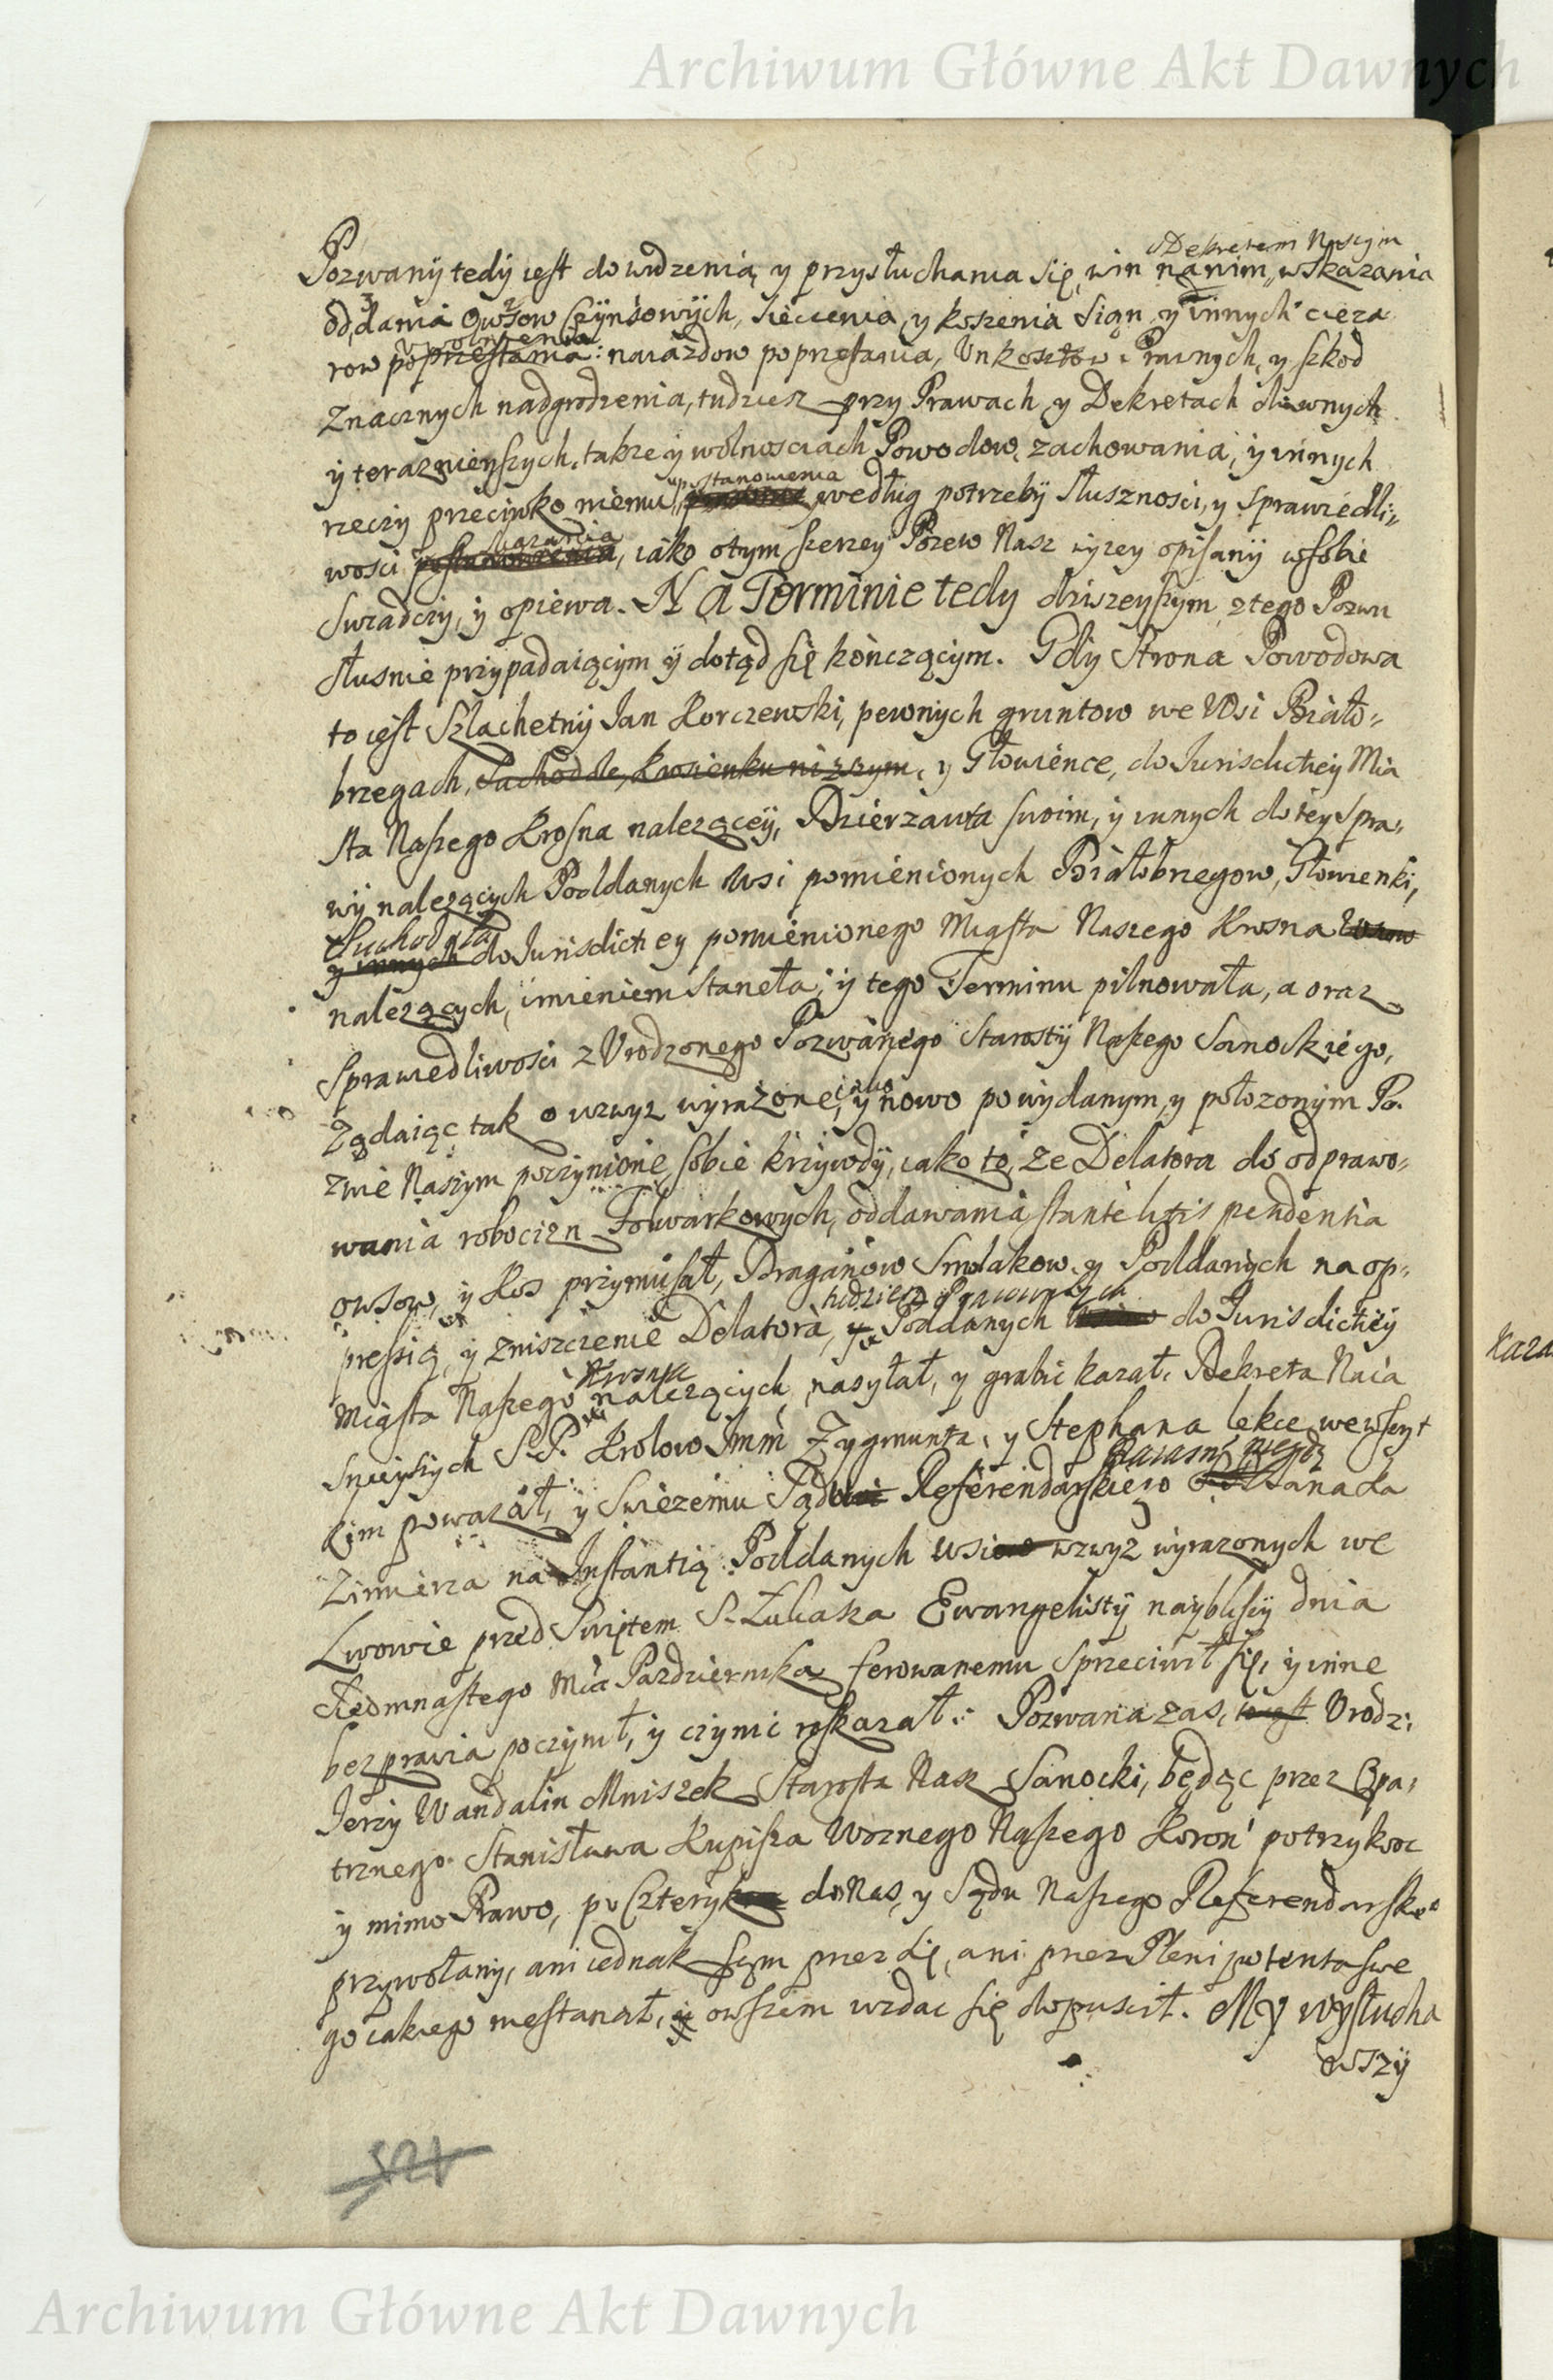 Archiwum Główne Akt Dawnych
Dekretem Naszym
Pozwany tedy iest do widzenia, y przysłuchania się, win na nim, wskazania
oddania Owsow Czynsowych, siecienia, y koszenia Sian, y innych cięza
uwolnienia
row poprzestania: naiazdow poprzestania, Unkosztow Prawnych, y szkod
znacznych nadgrodzenia, tudziesz przy Prawach y Dekretach dawnych
y teraznieyszych, takze y wolnosciach Powodow, zachowania, y innych
postanowienia
rzeczy przeciwko niemu według potrzeby słusznosci, y sprawiedli„
wosci postanowienia, iako o tym szerzey Pozew Nasz wyzey opisany w sobie
swiadczy, y opiewa. Na Terminie tedy dzisieyszym, z tego Pozwu
słusnie przypadaiącym y dotąd się kończącym. Gdy Strona Powodowa
to iest Szlachetny Jan Korczewski, pewnych gruntow we Wsi Biało„
brzegach, Suchodole, Krosienku nizszym, y Głowience, do Jurisdictiey Mia
sta Naszego Krosna nalezącey, Dzierzawca swoim, y innych do tey spra„
wy nalezących Poddanych Wsi pomienionych Białobrzegow, Głowienki,
Suchodoła
y innych do Jurisdictiey pomienionego Miasta Naszego Krosna
nalezących, imieniem stanęła, y tego Terminu pilnowała, a oraz
Sprawiedliwosci z Urodzonego Pozwanego Starosty Naszego Sanockiego,
ządaiąc tak o wzwyz wyrazone, y nowo po wydanym, y połozonym Po„
zwie Naszym poczynione sobie krzywdy, iako to, ze Delatora do odprawo„
wania robocizn Folwarkowych, oddawania stante litis pendentia
owsow, y Kos przymusał, Draganow Smolakow, y Poddanych na op„
tudziesz Pracownych
pressią, y zniszczenie Delatora, y Poddanych do Jurisdictiey
Krosna
Miasta Naszego nalezących, nasyłał, y grabic kazał. Dekreta Naia
snieyszych S.P. Krolow Jmm Zygmunta, y Stephana lekce we wszyt
kim powazał, y swiezemu Sądu Referendarskiego
zimierza na Instantią Poddanych wsi wzwyz wyrazonych we
Lwowie przed Swiętem S. Łukasza Ewangelisty naybliszy dnia
siedmnastego Mca Pazdziernika ferowanemu sprzeciwił się, y inne
bezprawia poczynił, y czynic roskazał: Pozwana zas, to iest Urodz:
Jerzy Wandalin Mniszek Starosta Nasz Sanocki, będąc przez Opa„
trznego Stanisława Kupisza Woznego Naszego Koron potrzykroc
y mimo Prawo, po czterykroc do Nas, y Sądu Naszego Referendarskᵒ
przywołany, ani iednak sam przez się, ani przez Plenipotenta swe
go iakiego nie stanął, y owszem wzdac się dopuscił. My wysłucha
wszy
521
Kaza
Archiwum Główne Akt Dawnych